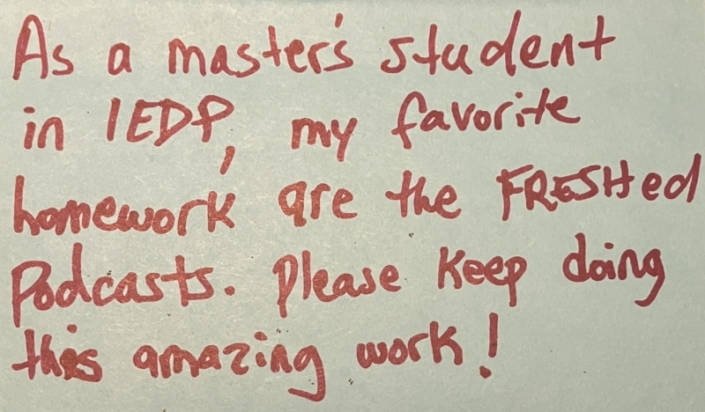 As a master's student
in IEDP, my favorite
homework are the FRESHed
Podcasts. Please keep doing
this amazing work!